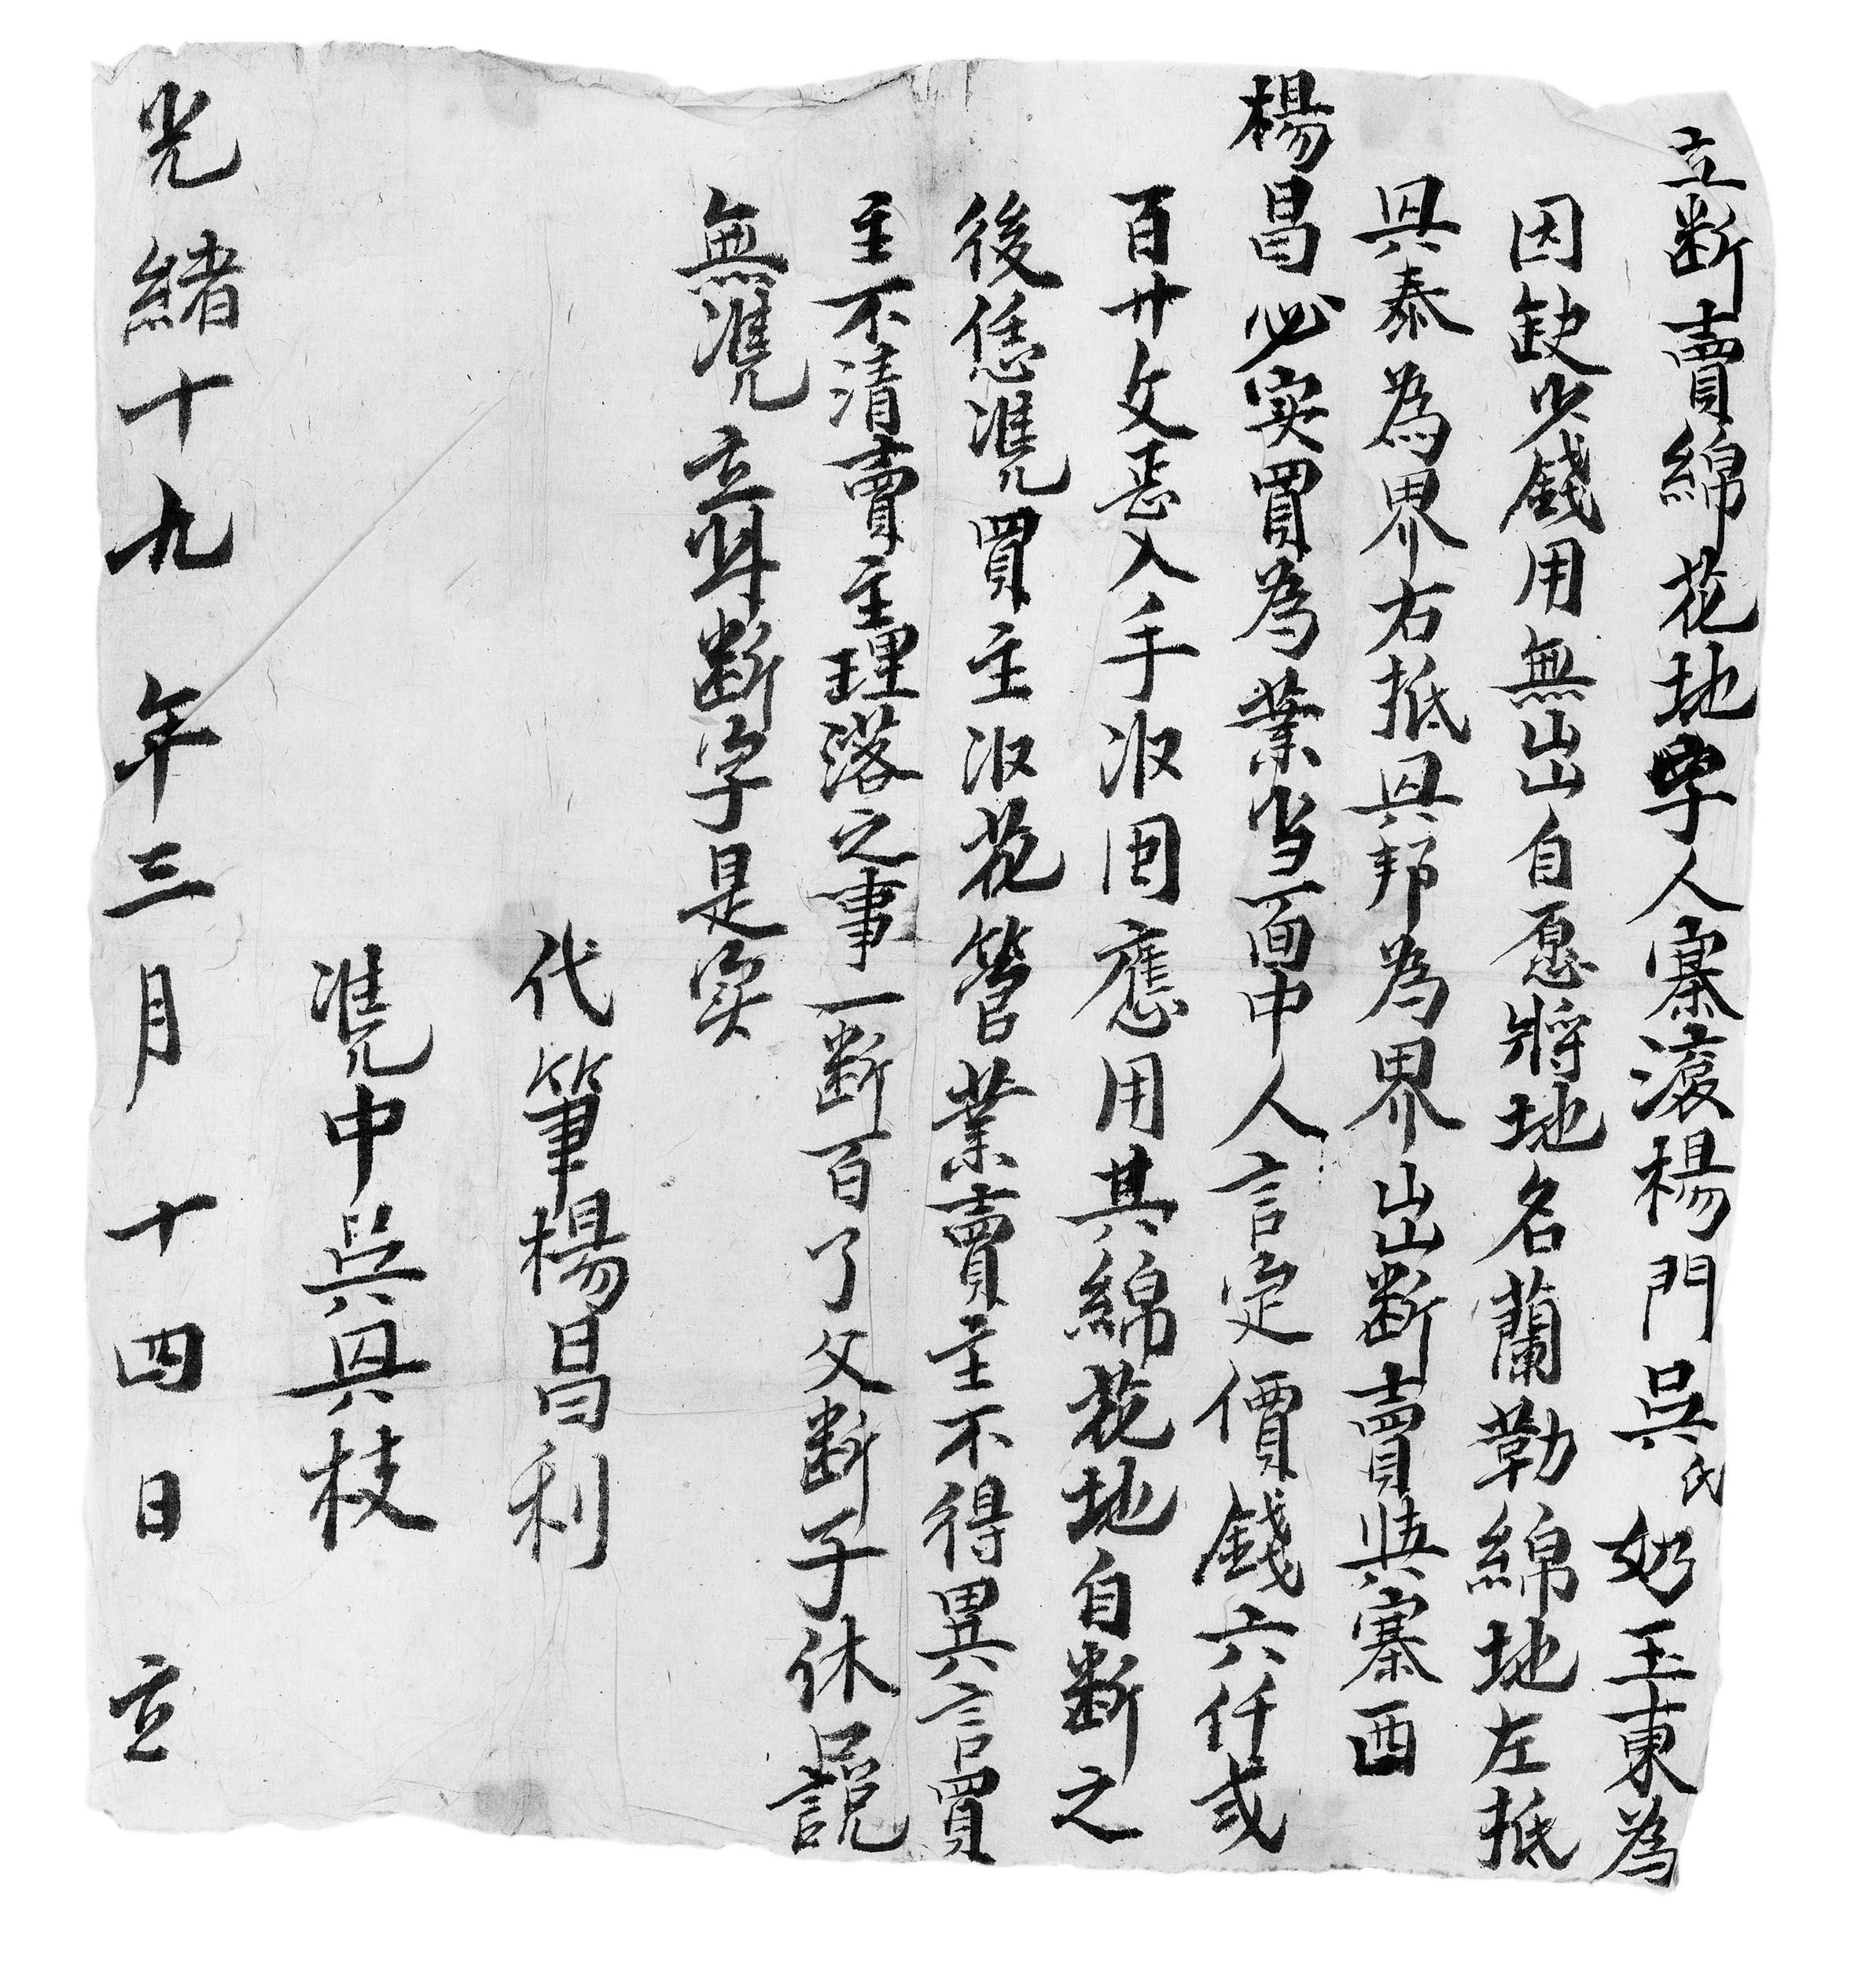 立断賣綿花地字人寨滾楊門吳氏奶玉東為
因缺少錢用無出自愿將地名蘭勒綿地左抵
興泰為界右抵興邦為界出断賣與寨西
楊昌必实買為業当面中人言定價錢六仟弍
百廿文悉入手收囬應用其綿花地自断之
後恁凴買主收花管業賣主不得異言買
主不清賣主理落之事一断百了父断子休口説
無凴立此断字是实
代筆楊昌利
凴中吳興枝
光緒十九年三月十四日立